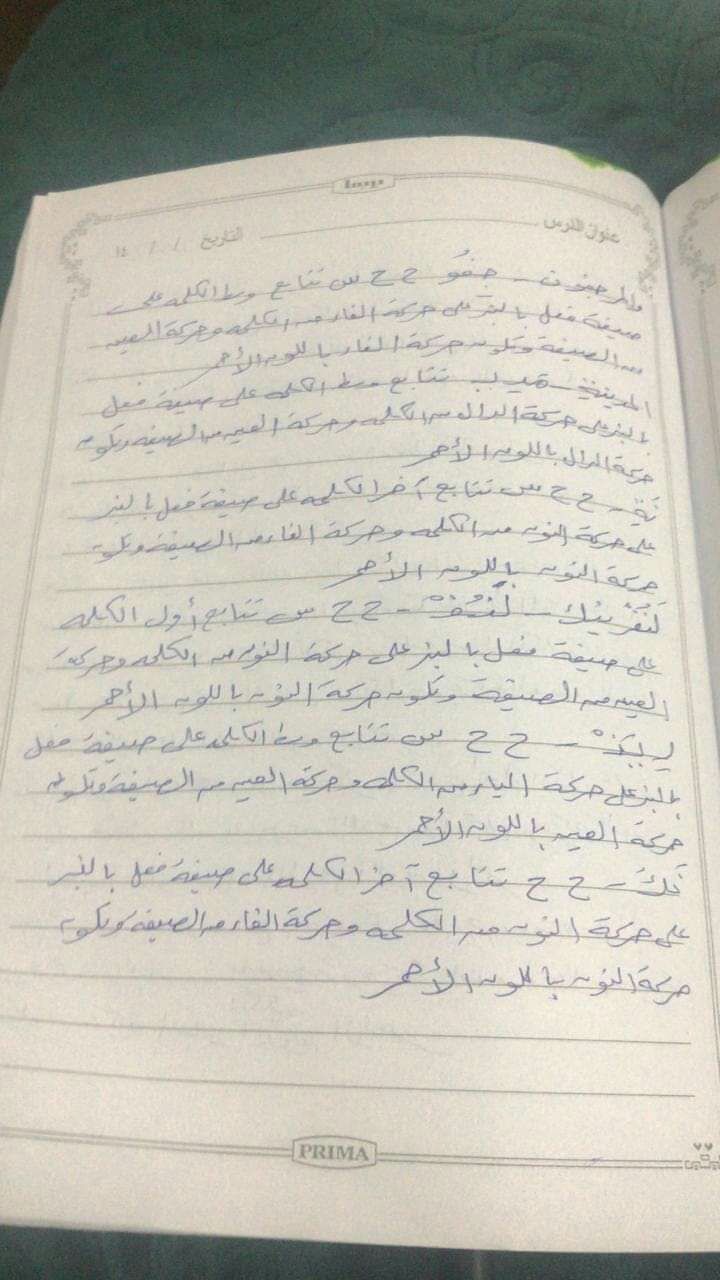 PRIMA
عنوان الدرس التاريخ / / ١٤
والمرجفون - جفُو ح ح س تتابع وسط الكلمه على
صيغة فعل بالنبر على حركة الفاء من الكلمه وحركة العين
من الصيغة وتكون حركة الفاء باللون الأحمر
المدينة - تتابع وسط الكلمه على صيغة فعل
بالنبر على حركة الدال من الكلمه وحركة العين من الصيغه وتكون
حركة الدال باللون الأحمر
ح ح س تتابع آخر الكلمه على صيغة فعل بالنبر
على حركة النون من الكلمه وحركة الفاء من الصيغه وتكون
حركة النون باللون الأحمر
لَنُغْرِيَنَّك - ح ح س تتابع أول الكلمه
على صيغة فعل بالنبر على حركة النون من الكلمه وحركة
العين من الصيغة وتكون حركة النون باللون الأحمر
ح ح س تتابع وسط الكلمه على صيغة فعل
بالنبر على حركة الياء من الكلمه وحركة العين من الصيغة وتكون
حركة العين باللون الأحمر
نَكَ - ح ح تتابع آخر الكلمه على صيغة فعل بالنبر
على حركة النون من الكلمه وحركة الفاء من الصيغه وتكون
حركة النون باللون الأحمر
PRIMA